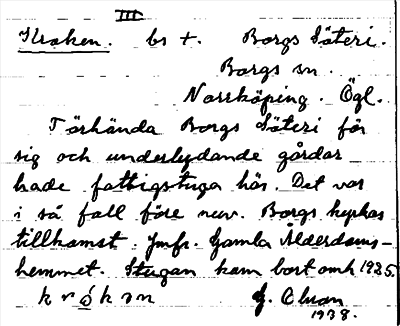 III
Kraken. bs +. Borgs Säteri.
Borgs sn.
Norrköping. Ögl.
Törhända Borgs Säteri för
sig och underlydande gårdar
hade fattigstuga här. Det var
i så fall före nuv. Borgs kyrkas
tillkomst. Jmfr. Gamla Ålderdoms-
hemmet. Stugan kom bort omk 1925.
G.
1938.